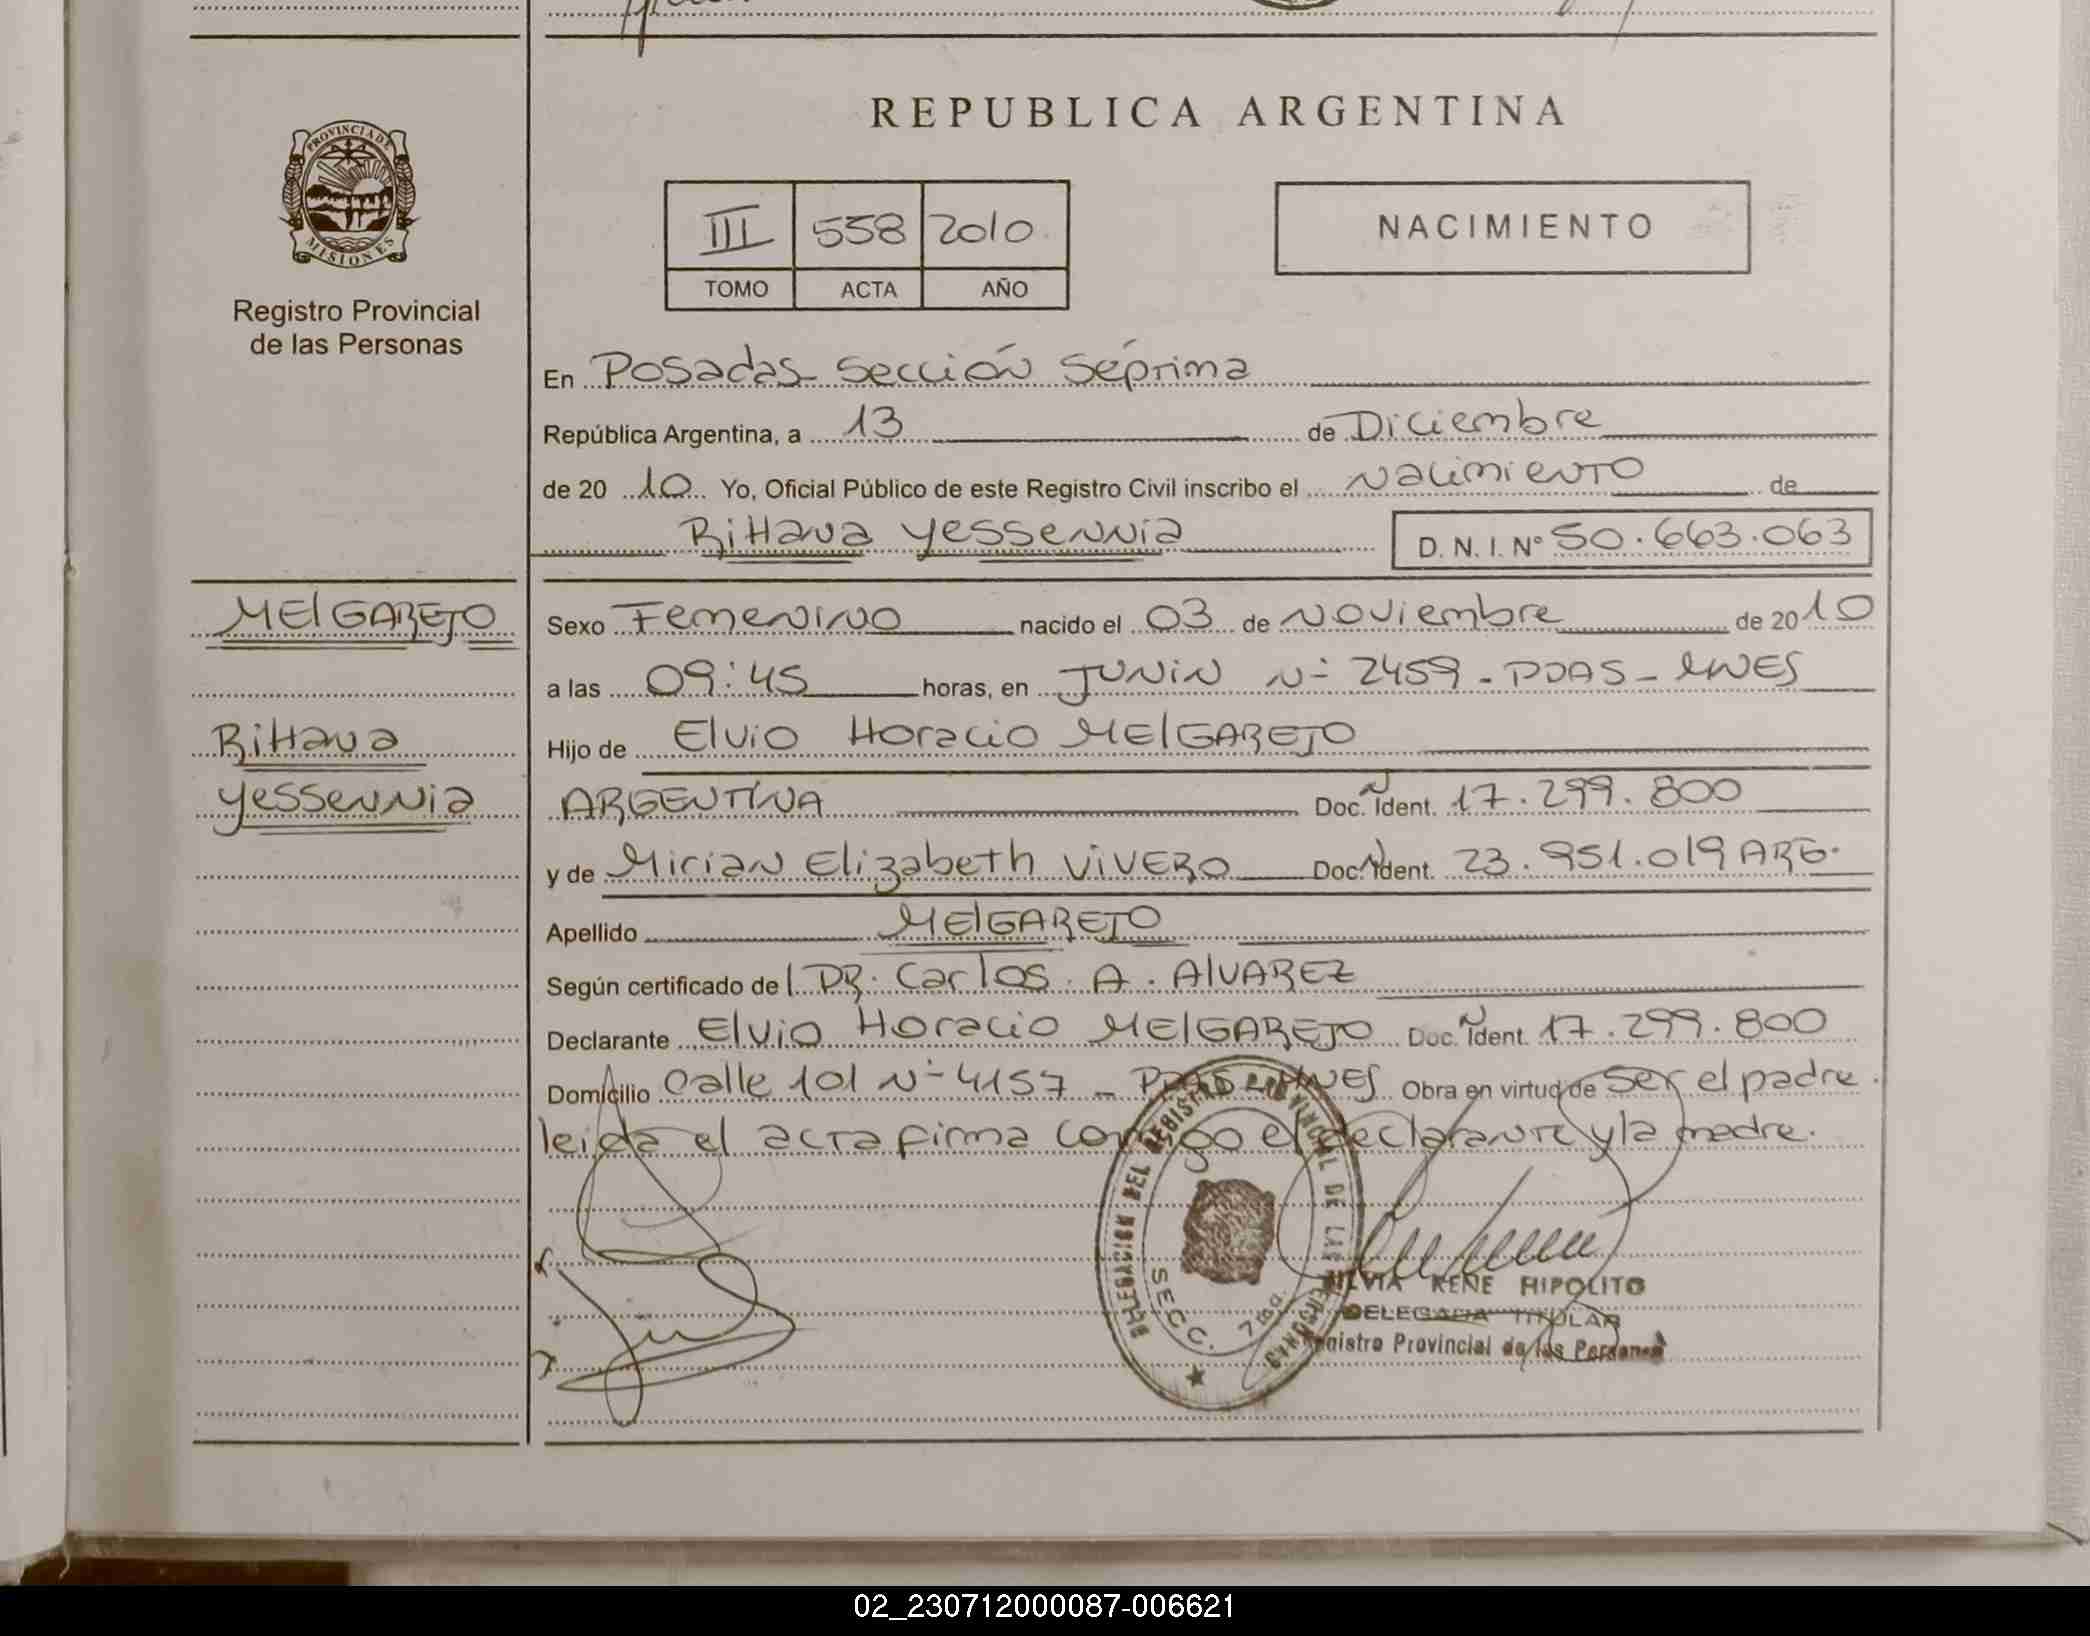 REPUBLICA ARGENTINA
PROVINCIA DE
MISIONES
Registro Provincial
de las Personas
III 558 2010
TOMO ACTA AÑO
NACIMIENTO
En Posadas Sección Séprima
República Argentina, a 13 de Diciembre
de 20 10 Yo, Oficial Público de este Registro Civil inscribo el Nacimiento de
RiHana Yessennia D. N. I. Nº 50.663.063
MElGAREJO
RiHana
Yessennia
Sexo Femenino nacido el 03 de Noviembre de 2010
a las 09:45 horas, en JUNiN Nº 2459 - PDAS - MNES
Hijo de Elvio Horacio MElGAREJO
ARGENTINA Doc. Ident. 17.299.800
y de Mirian Elizabeth VIVERO Doc. Ident. 23.951.019 ARG.
Apellido MElGAREJO
Según certificado de l DR. Carlos A. AlVAREZ
Declarante Elvio Horacio MElGAREJO Doc. Ident. 17.299.800
Domicilio Calle 101 Nº 4157 - PDAS - MNES Obra en virtud de Ser el padre.
leida el acta firma conmigo el declarante y la madre.
DELEGACION DEL REGISTRO PROVINCIAL DE LAS PERSONAS
SECC. 7ma.
SILVIA RENE HIPOLITO
DELEGADA TITULAR
Registro Provincial de las Personas
02_230712000087-006621